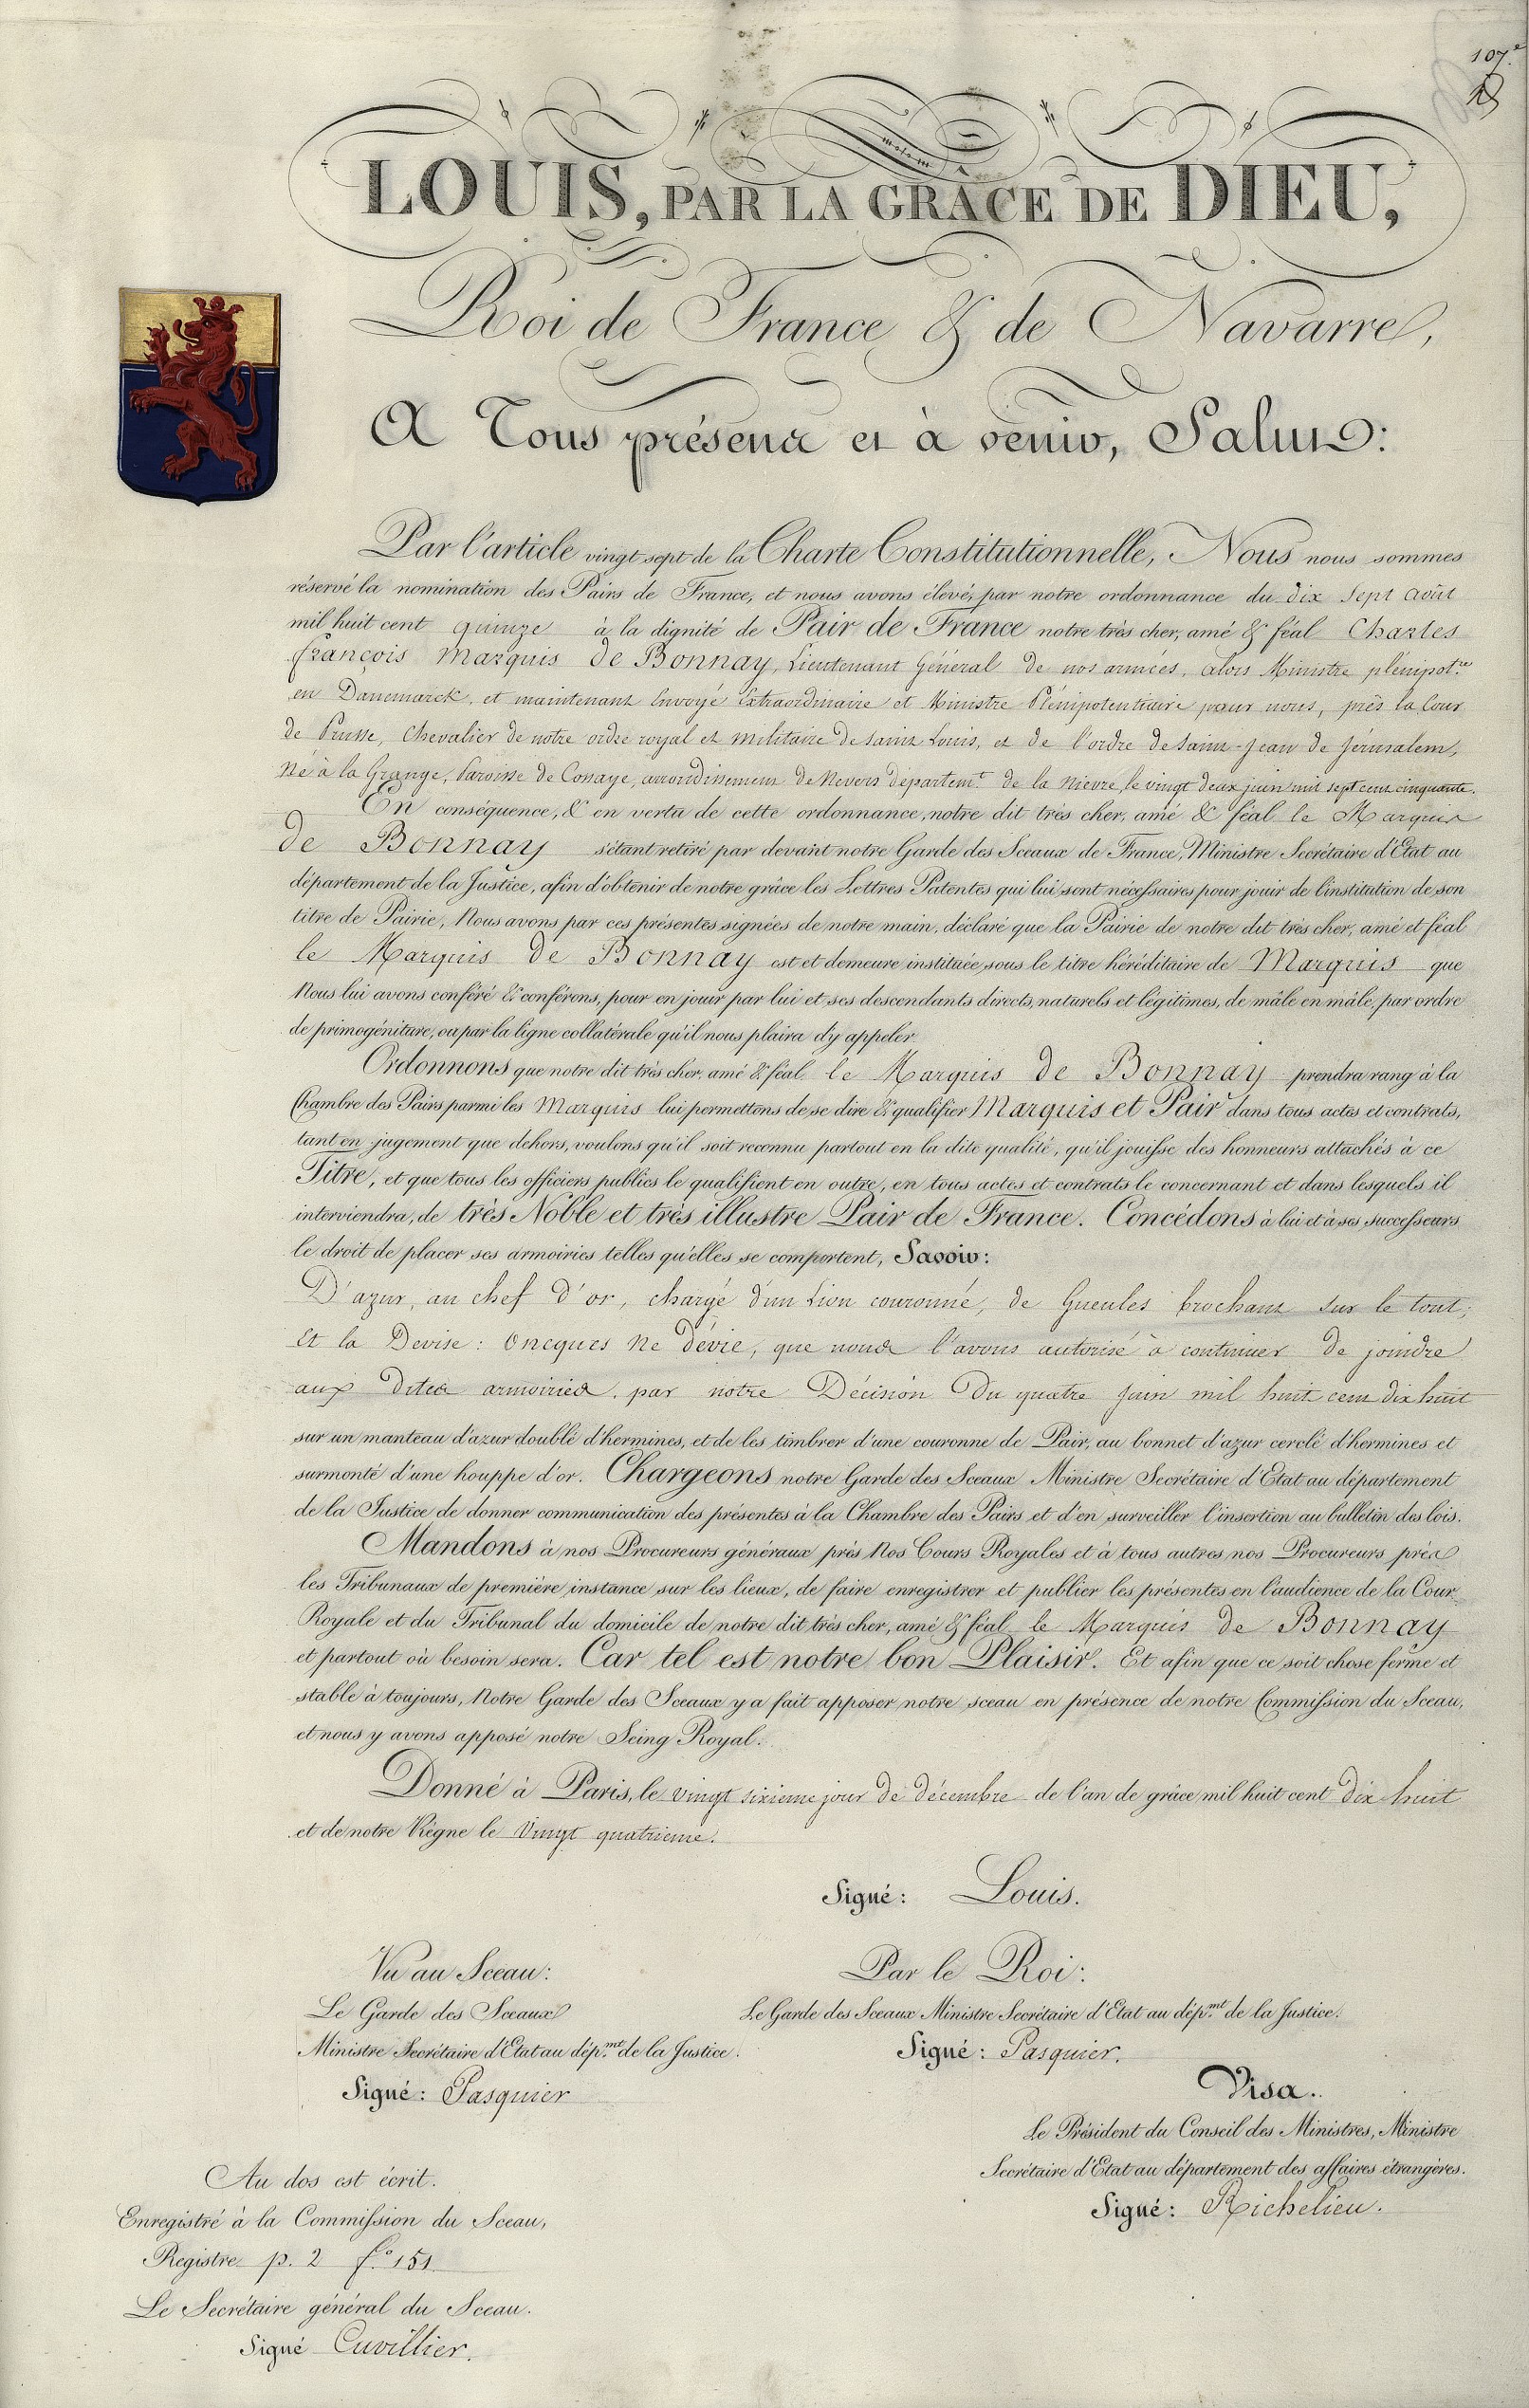 107.e
LOUIS, PAR LA GRÂCE DE DIEU,
Roi de France & de Navarre,
A Tous présens et à venir, Salut:
Par l'article vingt sept de la Charte Constitutionnelle, Nous nous sommes
réservé la nomination des Pairs de France, et nous avons élevé, par notre ordonnance du dix Sept août
mil huit cent quinze à la dignité de Pair de France notre très cher, amé & féal Charles
françois Marquis de Bonnay, Lieutenant Général de nos armées, alors Ministre plénipot.re
en Danemarck, et maintenant Envoyé Extraordinaire et Ministre Plénipotentiaire pour nous, près la Cour
de Prusse, Chevalier de notre ordre royal et militaire de saint Louis, et de l'ordre de saint-Jean de Jérusalem,
Né à la Grange, Paroisse de Cossaye, arrondissement de Nevers départem.t de la Nièvre, le vingt deux juin mil sept cent cinquante.
En conséquence, & en vertu de cette ordonnance, notre dit très cher, amé & féal le Marquis
de Bonnay s'étant retiré par devant notre Garde des Sceaux de France, Ministre Secrétaire d'Etat au
département de la Justice, afin d'obtenir de notre grâce les Lettres Patentes qui lui sont nécessaires pour jouir de l'institution de son
titre de Pairie, Nous avons par ces présentes signées de notre main, déclaré que la Pairie de notre dit très cher, amé et féal
le Marquis de Bonnay est et demeure instituée sous le titre héréditaire de Marquis que
Nous lui avons conféré & conférons, pour en jouir par lui et ses descendants directs, naturels et légitimes, de mâle en mâle, par ordre
de primogéniture, ou par la ligne collatérale qu'il nous plaira d'y appeler.
Ordonnons que notre dit très cher, amé & féal le Marquis de Bonnay prendra rang à la
Chambre des Pairs parmi les Marquis lui permettons de se dire & qualifier Marquis et Pair dans tous actes et contrats,
tant en jugement que dehors, voulons qu'il soit reconnu partout en la dite qualité, qu'il jouisse des honneurs attachés à ce
Titre, et que tous les officiers publics le qualifient en outre, en tous actes et contrats le concernant et dans lesquels il
interviendra, de très Noble et très illustre Pair de France. Concédons à lui et à ses successeurs
le droit de placer ses armoiries telles qu'elles se comportent, Savoir:
D'azur, au chef d'or, chargé d'un Lion couronné, de Gueules brochant sur le tout;
Et la Devise: Oncques Ne dévie, que nous l'avons autorisé à continuer de joindre
aux dites armoiries, par notre Décision du quatre Juin mil huit cent dix huit
sur un manteau d'azur doublé d'hermines, et de les timbrer d'une couronne de Pair, au bonnet d'azur cerclé d'hermines et
surmonté d'une houppe d'or. Chargeons notre Garde des Sceaux Ministre Secrétaire d'Etat au département
de la Justice de donner communication des présentes à la Chambre des Pairs et d'en surveiller l'insertion au bulletin des lois.
Mandons à nos Procureurs généraux près Nos Cours Royales et à tous autres nos Procureurs près
les Tribunaux de première instance sur les lieux, de faire enregistrer et publier les présentes en l'audience de la Cour
Royale et du Tribunal du domicile de notre dit très cher, amé & féal le Marquis de Bonnay
et partout où besoin sera. Car tel est notre bon Plaisir. Et afin que ce soit chose ferme et
stable à toujours, Notre Garde des Sceaux y a fait apposer notre sceau en présence de notre Commission du Sceau,
et nous y avons apposé notre Seing Royal.
Donné à Paris, le vingt sixieme jour de décembre de l'an de grâce mil huit cent dix huit
et de notre Règne le Vingt quatrieme.
Signé: Louis.
Vu au Sceau:
Le Garde des Sceaux
Ministre Secrétaire d'Etat au dép.mt de la Justice.
Signé: Pasquier
Par le Roi:
Le Garde des Sceaux Ministre Secrétaire d'Etat au dép.mt de la Justice.
Signé: Pasquier.
Visa.
Le Président du Conseil des Ministres, Ministre
Secrétaire d'Etat au département des affaires étrangères.
Signé: Richelieu.
Au dos est écrit.
Enregistré à la Commission du Sceau,
Registre p. 2 f.o 151
Le Secrétaire général du Sceau.
Signé Cuvillier.